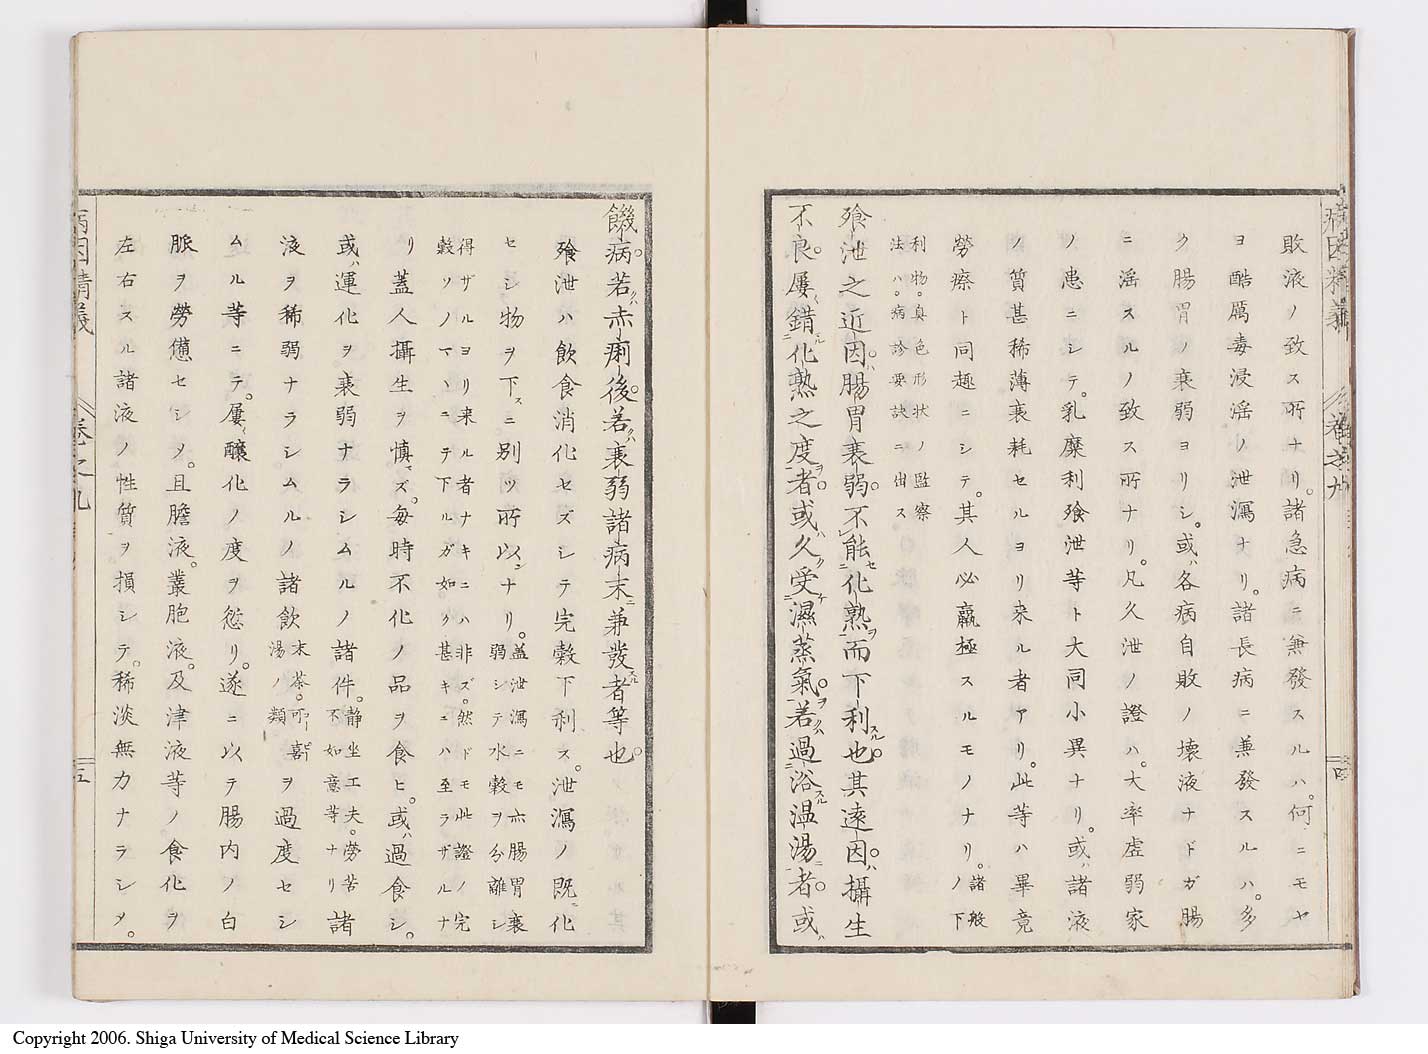 病因精義 卷之九 四
敗液ノ致ス所ナリ。諸急病ニ兼發スルハ。何ニモヤ
ヨ酷厲毒浸淫ノ泄瀉ナリ。諸長病ニ兼發スルハ。多
ク腸胃ノ衰弱ヨリシ。或ハ各病自敗ノ壊液ナドガ腸
ニ淫スルノ致ス所ナリ。凡久泄ノ證ハ。大率虚弱家
ノ患ニシテ。乳糜利飱泄等ト大同小異ナリ。或ハ諸液
ノ質甚稀薄衰耗セルヨリ来ル者アリ。此等ハ畢竟
勞瘵ト同趣ニシテ。其人必羸極スルモノナリ。諸般ノ下
利物。臭色形状ノ監察
法ハ。病診要訣ニ出ス
飱泄之近因。腸胃衰弱。不能化熟而下利也。其遠因。攝生
不良。屢錯化熟之度者。或久受濕蒸氣。若過浴温湯者。或
饑病若赤痢後。若衰弱諸病末兼發者等也。
飱泄ハ飲食消化セズシテ完穀下利ス。泄瀉ノ既ニ化
セシ物ヲ下スニ別ツ所以ナリ。蓋泄瀉ニモ亦腸胃衰弱シテ水穀ヲ分離シ
得ザルヨリ来ル者ナキニハ非ズ。然ドモ此證ノ完
穀ソノマヽニテ下ルガ如ク甚キニハ至ラザルナ
リ蓋人攝生ヲ慎マズ。毎時不化ノ品ヲ食ヒ。或ハ過食シ。
或ハ運化ヲ衰弱ナラシムルノ諸件。静坐工夫。勞苦不如意等ナリ諸
液ヲ稀弱ナラシムルノ諸飲末茶。可喜湯ノ類ヲ過度セシ
ムル等ニテ。屢釀化ノ度ヲ愆リ。遂ニ以テ腸内ノ白
脈ヲ勞憊セシメ。且膽液。叢胞液。及津液等ノ食化ヲ
左右スル諸液ノ性質ヲ損シテ。稀淡無力ナラシメ。
病因精義 卷之九 五
Copyright 2006. Shiga University of Medical Science Library